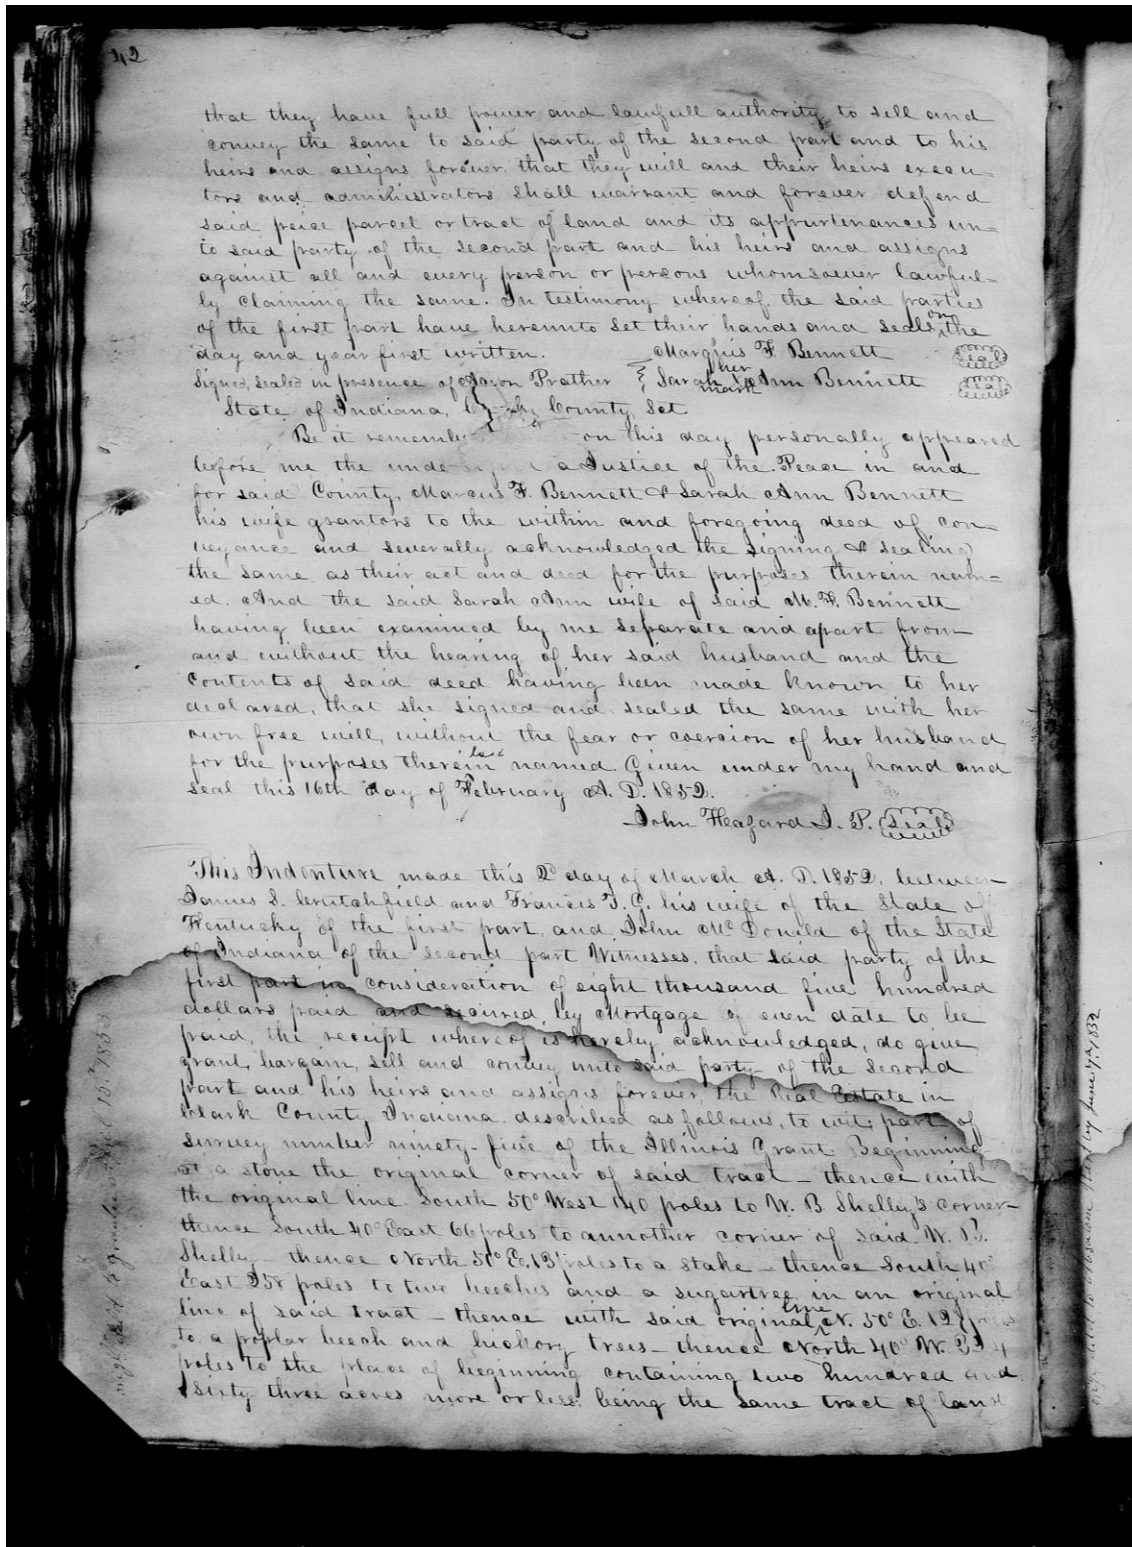 42
that they have full power and lawfull authority to sell and
convey the same to said party of the second part and to his
heirs and assigns forever that they will and their heirs execu-
tors and administrators shall warrant and forever defend
said peice parcel or tract of land and its appurtenances un-
to said party of the second part and his heirs and assigns
against all and every person or persons whomsoever lawful-
ly claiming the same. In testimony whereof the said parties
of the first part have hereunto set their hands and seals on the
day and year first written. Marquis F. Bennett Seal
Signed, sealed in presence of Prather Sarah her mark Ann Bennett Seal
State of Indiana, County, Set
Be it on this day personally appeared
before me the a Justice of the Peace in and
for said County, Marcus F. Bennett & Sarah Ann Bennett
his wife grantors to the within and foregoing deed of con-
veyance and severally acknowledged the signing & sealing
the same as their act and deed for the purposes therein nam-
ed. And the said Sarah Ann wife of said M. F. Bennett
having been examined by me separate and apart from
and without the hearing of her said husband and the
contents of said deed having been made known to her
declared, that she signed and sealed the same with her
own free will, without the fear or coercion of her husband
for the purposes therein last named Given under my hand and
seal this 16th day of February A. D. 1852.
John J. P. Seal
This Indenture made this 2d day of March A. D. 1852. between
James S. Crutchfield and Francis T. G. his wife of the State of
Kentucky of the first part, and John McDonald of the State
of Indiana of the second part Witnesses, that said party of the
first part in consideration of eight thousand five hundred
dollars paid and secured, by Mortgage of even date to be
paid, the receipt whereof is hereby acknowledged, do give
grant, bargain, sell and convey unto said party of the second
part and his heirs and assigns forever, the Real Estate in
Clark County, Indiana. described as follows, to wit; part of
survey number ninety-five of the Illinois Grant Beginning
at a stone the original corner of said tract - thence with
the original line South 50° West 140 poles to W. B Shelly's corner-
thence South 40° East 66 poles to annother corner of said W. B.
Shelly - thence North 50° E. 13 poles to a stake - thence South 40°
East 258 poles to two beeches and a sugartree in an original
line of said tract - thence with said original line N. 50° E.
to a poplar beech and hickory trees - thence North 40° W.
poles to the place of beginning containing two hundred and
sixty three acres more or less, being the same tract of land